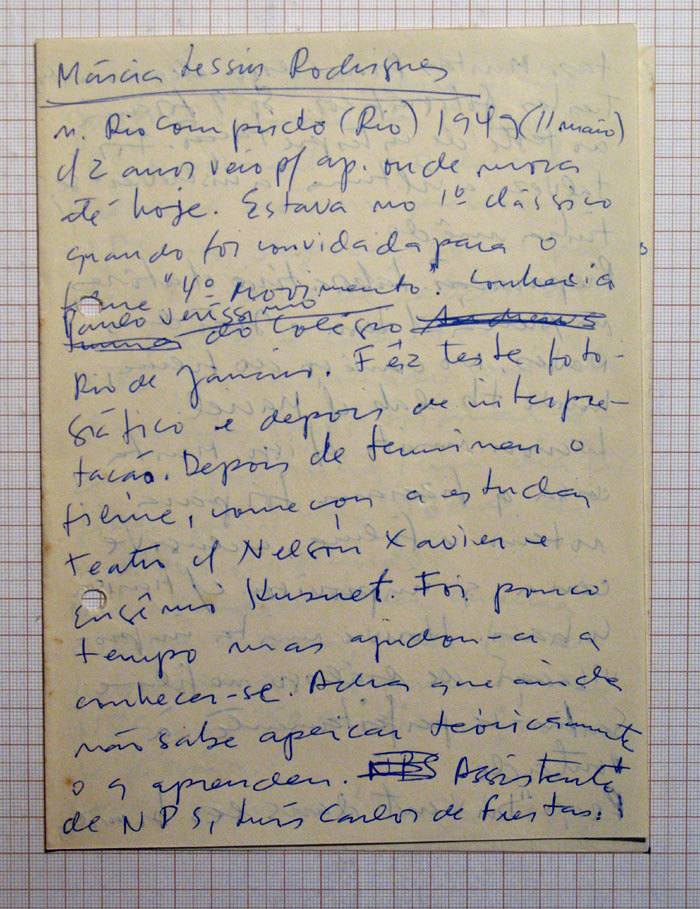 Márcia Lessin Rodrigues
n. Rio Comprido (Rio) 1949 (11 maio)
c/ 2 anos veio p/ ap. onde mora
até hoje. Estava no 1º clássico
quando foi convidada para o
filme "4º Movimento". Conhecia
Paulo Veríssimo
do Colégio Andrews
Rio de Janeiro. Fêz teste foto-
gráfico e depois de interpre-
tação. Depois de terminar o
filme, começou a estudar
teatro c/ Nelson Xavier e
Eugênio Kusnet. Foi pouco
tempo mas ajudou-a a
conhecer-se. Acha que ainda
não sabe aplicar teòricamente
o q aprendeu. NPS Assistente
de NPS, Luís Carlos de Freitas.